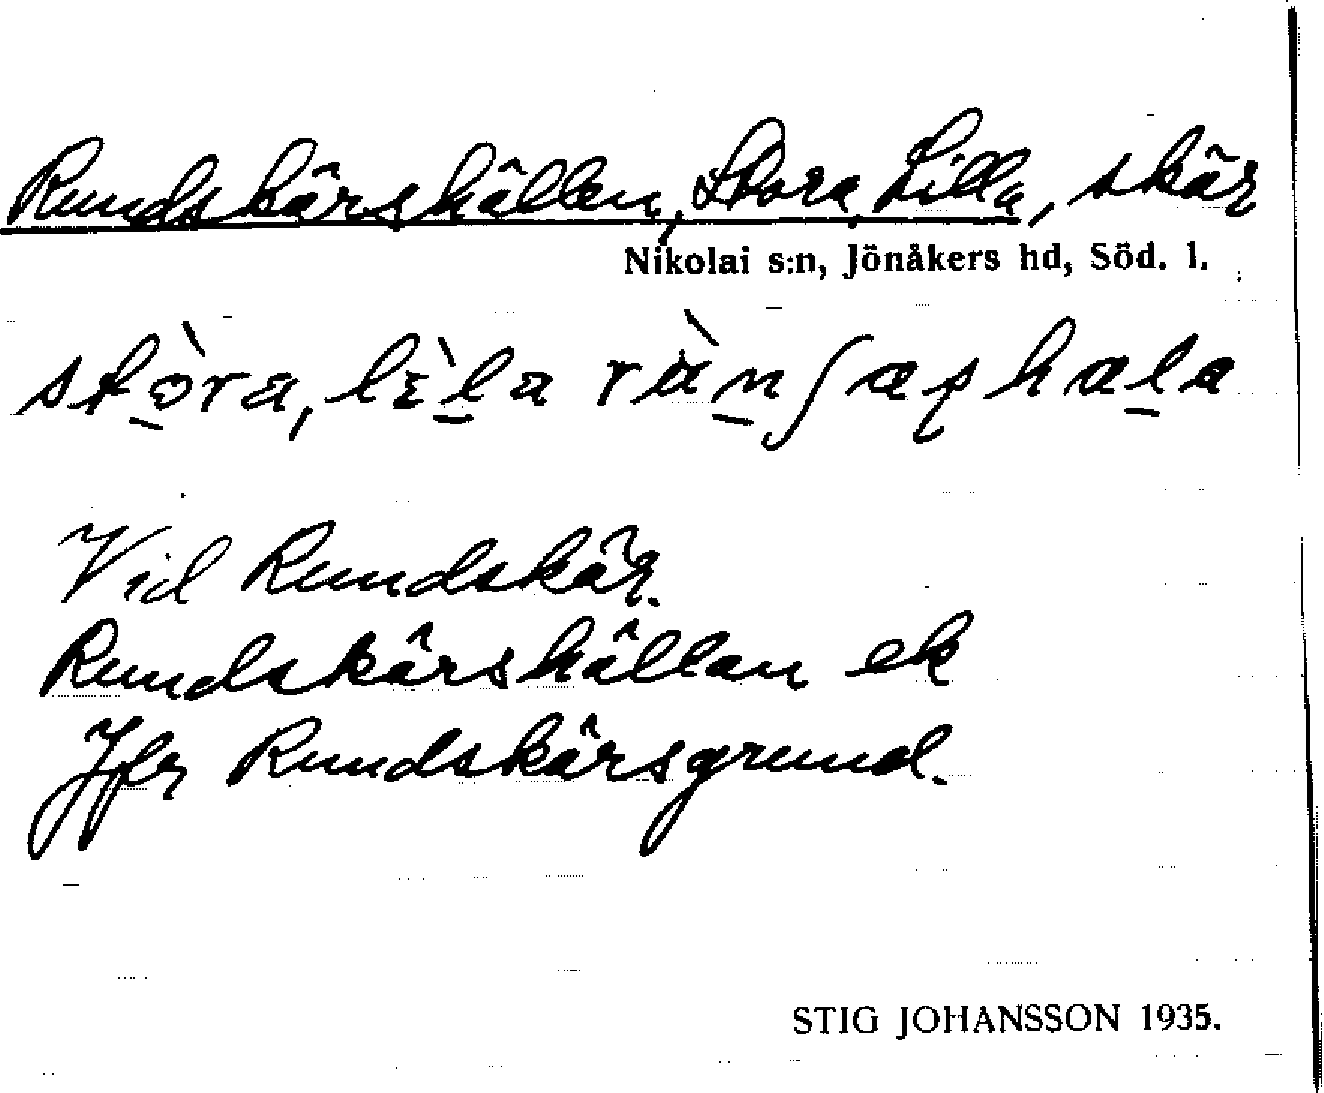 Rundskärshällen, Stora, Lilla, skär
Nikolai s:n, Jönåkers hd, Söd. l.
Vid Rundskär.
Rundskärshällan ek
Jfr Rundskärsgrund.
STIG JOHANSSON 1935.